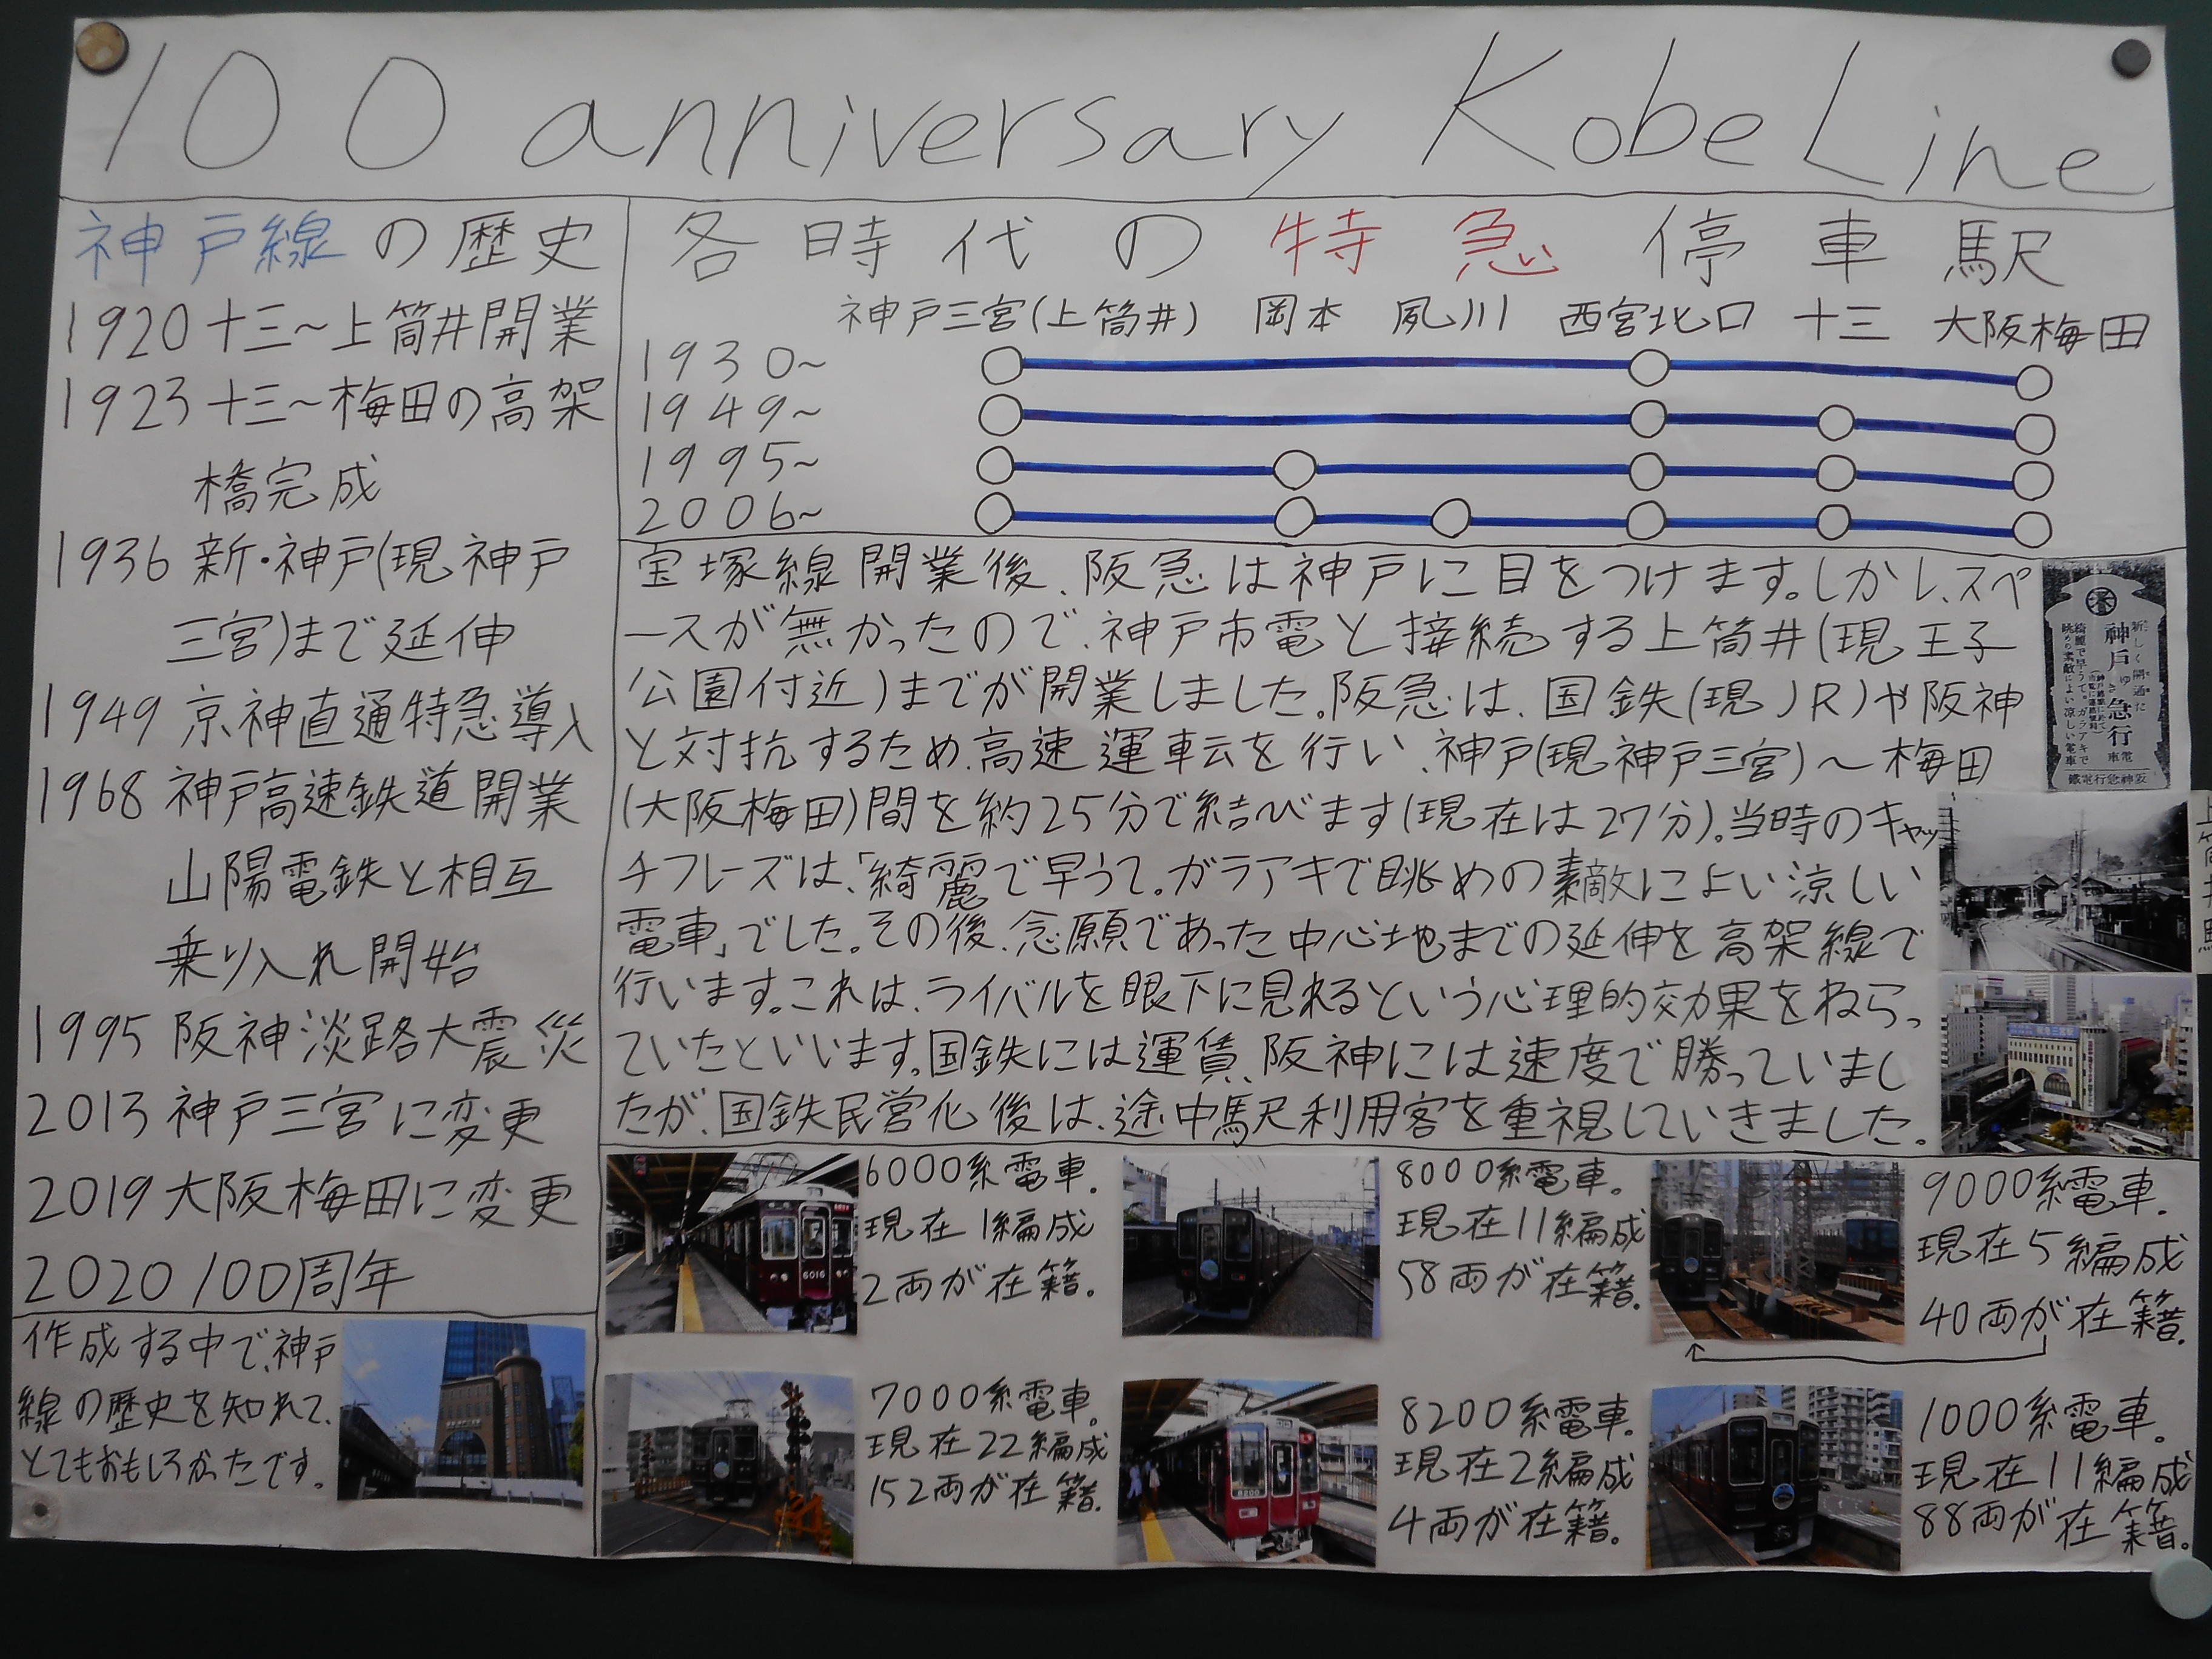 100 anniversary Kobe Line
神戸線の歴史
1920 十三～上筒井開業
1923 十三～梅田の高架
橋完成
1936 新・神戸(現神戸
三宮)まで延伸
1949 京神直通特急導入
1968 神戸高速鉄道開業
山陽電鉄と相互
乗り入れ開始
1995 阪神淡路大震災
2013 神戸三宮に変更
2019 大阪梅田に変更
2020 100周年
作成する中で、神戸
線の歴史を知れて、
とてもおもしろかったです。
各時代の特急停車駅
神戸三宮(上筒井) 岡本 夙川 西宮北口 十三 大阪梅田
1930～
1949～
1995～
2006～
宝塚線開業後、阪急は神戸に目をつけます。しかし、スペ
ースが無かったので、神戸市電と接続する上筒井(現王子
公園付近)までが開業しました。阪急は、国鉄(現JR)や阪神
と対抗するため、高速運転を行い、神戸(現神戸三宮)～梅田
(大阪梅田)間を約25分で結びます(現在は27分)。当時のキャッ
チフレーズは、「綺麗で早うて。ガラアキで眺めの素敵によい涼しい
電車」でした。その後、念願であった中心地までの延伸を高架線で
行います。これは、ライバルを眼下に見れるという心理的効果をねらっ
ていたといいます。国鉄には運賃、阪神には速度で勝っていまし
たが、国鉄民営化後は、途中駅利用客を重視していきました。
新しく開通した
神戸ゆき急行電車
綺麗で早うて。ガラアキで
眺めの素敵によい涼しい電車
阪神急行電鉄
上筒井駅
6000系電車。
現在1編成
2両が在籍。
6016
8000系電車。
現在11編成
58両が在籍。
9000系電車。
現在5編成
40両が在籍。
7000系電車。
現在22編成
152両が在籍。
8200系電車。
現在2編成
4両が在籍。
8200
1000系電車。
現在11編成
88両が在籍。